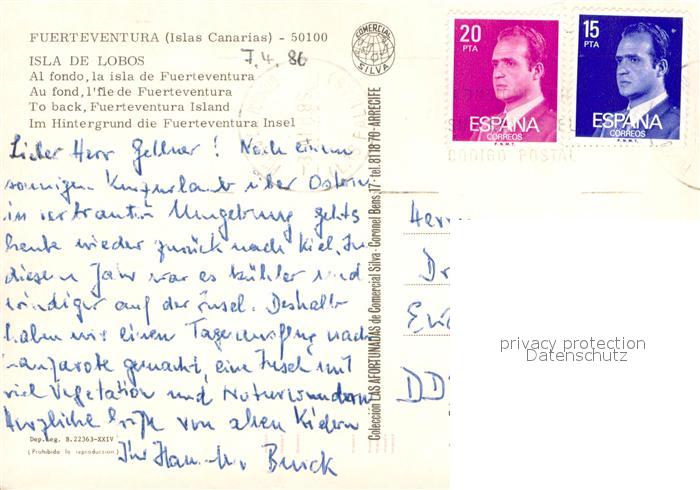 FUERTEVENTURA (Islas Canarias) - 50100
7.4.86
ISLA DE LOBOS
Al fondo, la isla de Fuerteventura
Au fond, l'île de Fuerteventura
To back, Fuerteventura Island
Im Hintergrund die Fuerteventura Insel
Lieber Herr Gellner! Nach einem
sonnigen Kurzurlaub über Ostern
in vertrauter Umgebung gehts
heute wieder zurück nach Kiel. In
diesem Jahr war es kühler und
windiger auf der Insel. Deshalb
haben wir einen Tagesausflug nach
Lanzarote gemacht, eine Insel mit
viel Vegetation und Naturwundern
Herzliche Grüße von alten Kielern
Ihr Buick
Dep. Leg. B. 22363-XXIV
(Prohibida la reproduccion)
COMERCIAL SILVA
Colección LAS AFORTUNADAS de Comercial Silva - Coronel Bens, 17 - tel. 81 18 70 - ARRECIFE
20 PTA
ESPAÑA
CORREOS
F.N.M.T.
15 PTA
ESPAÑA
CORREOS
F.N.M.T.
CODIGO POSTAL
Herr
Dr
DD
privacy protection
Datenschutz